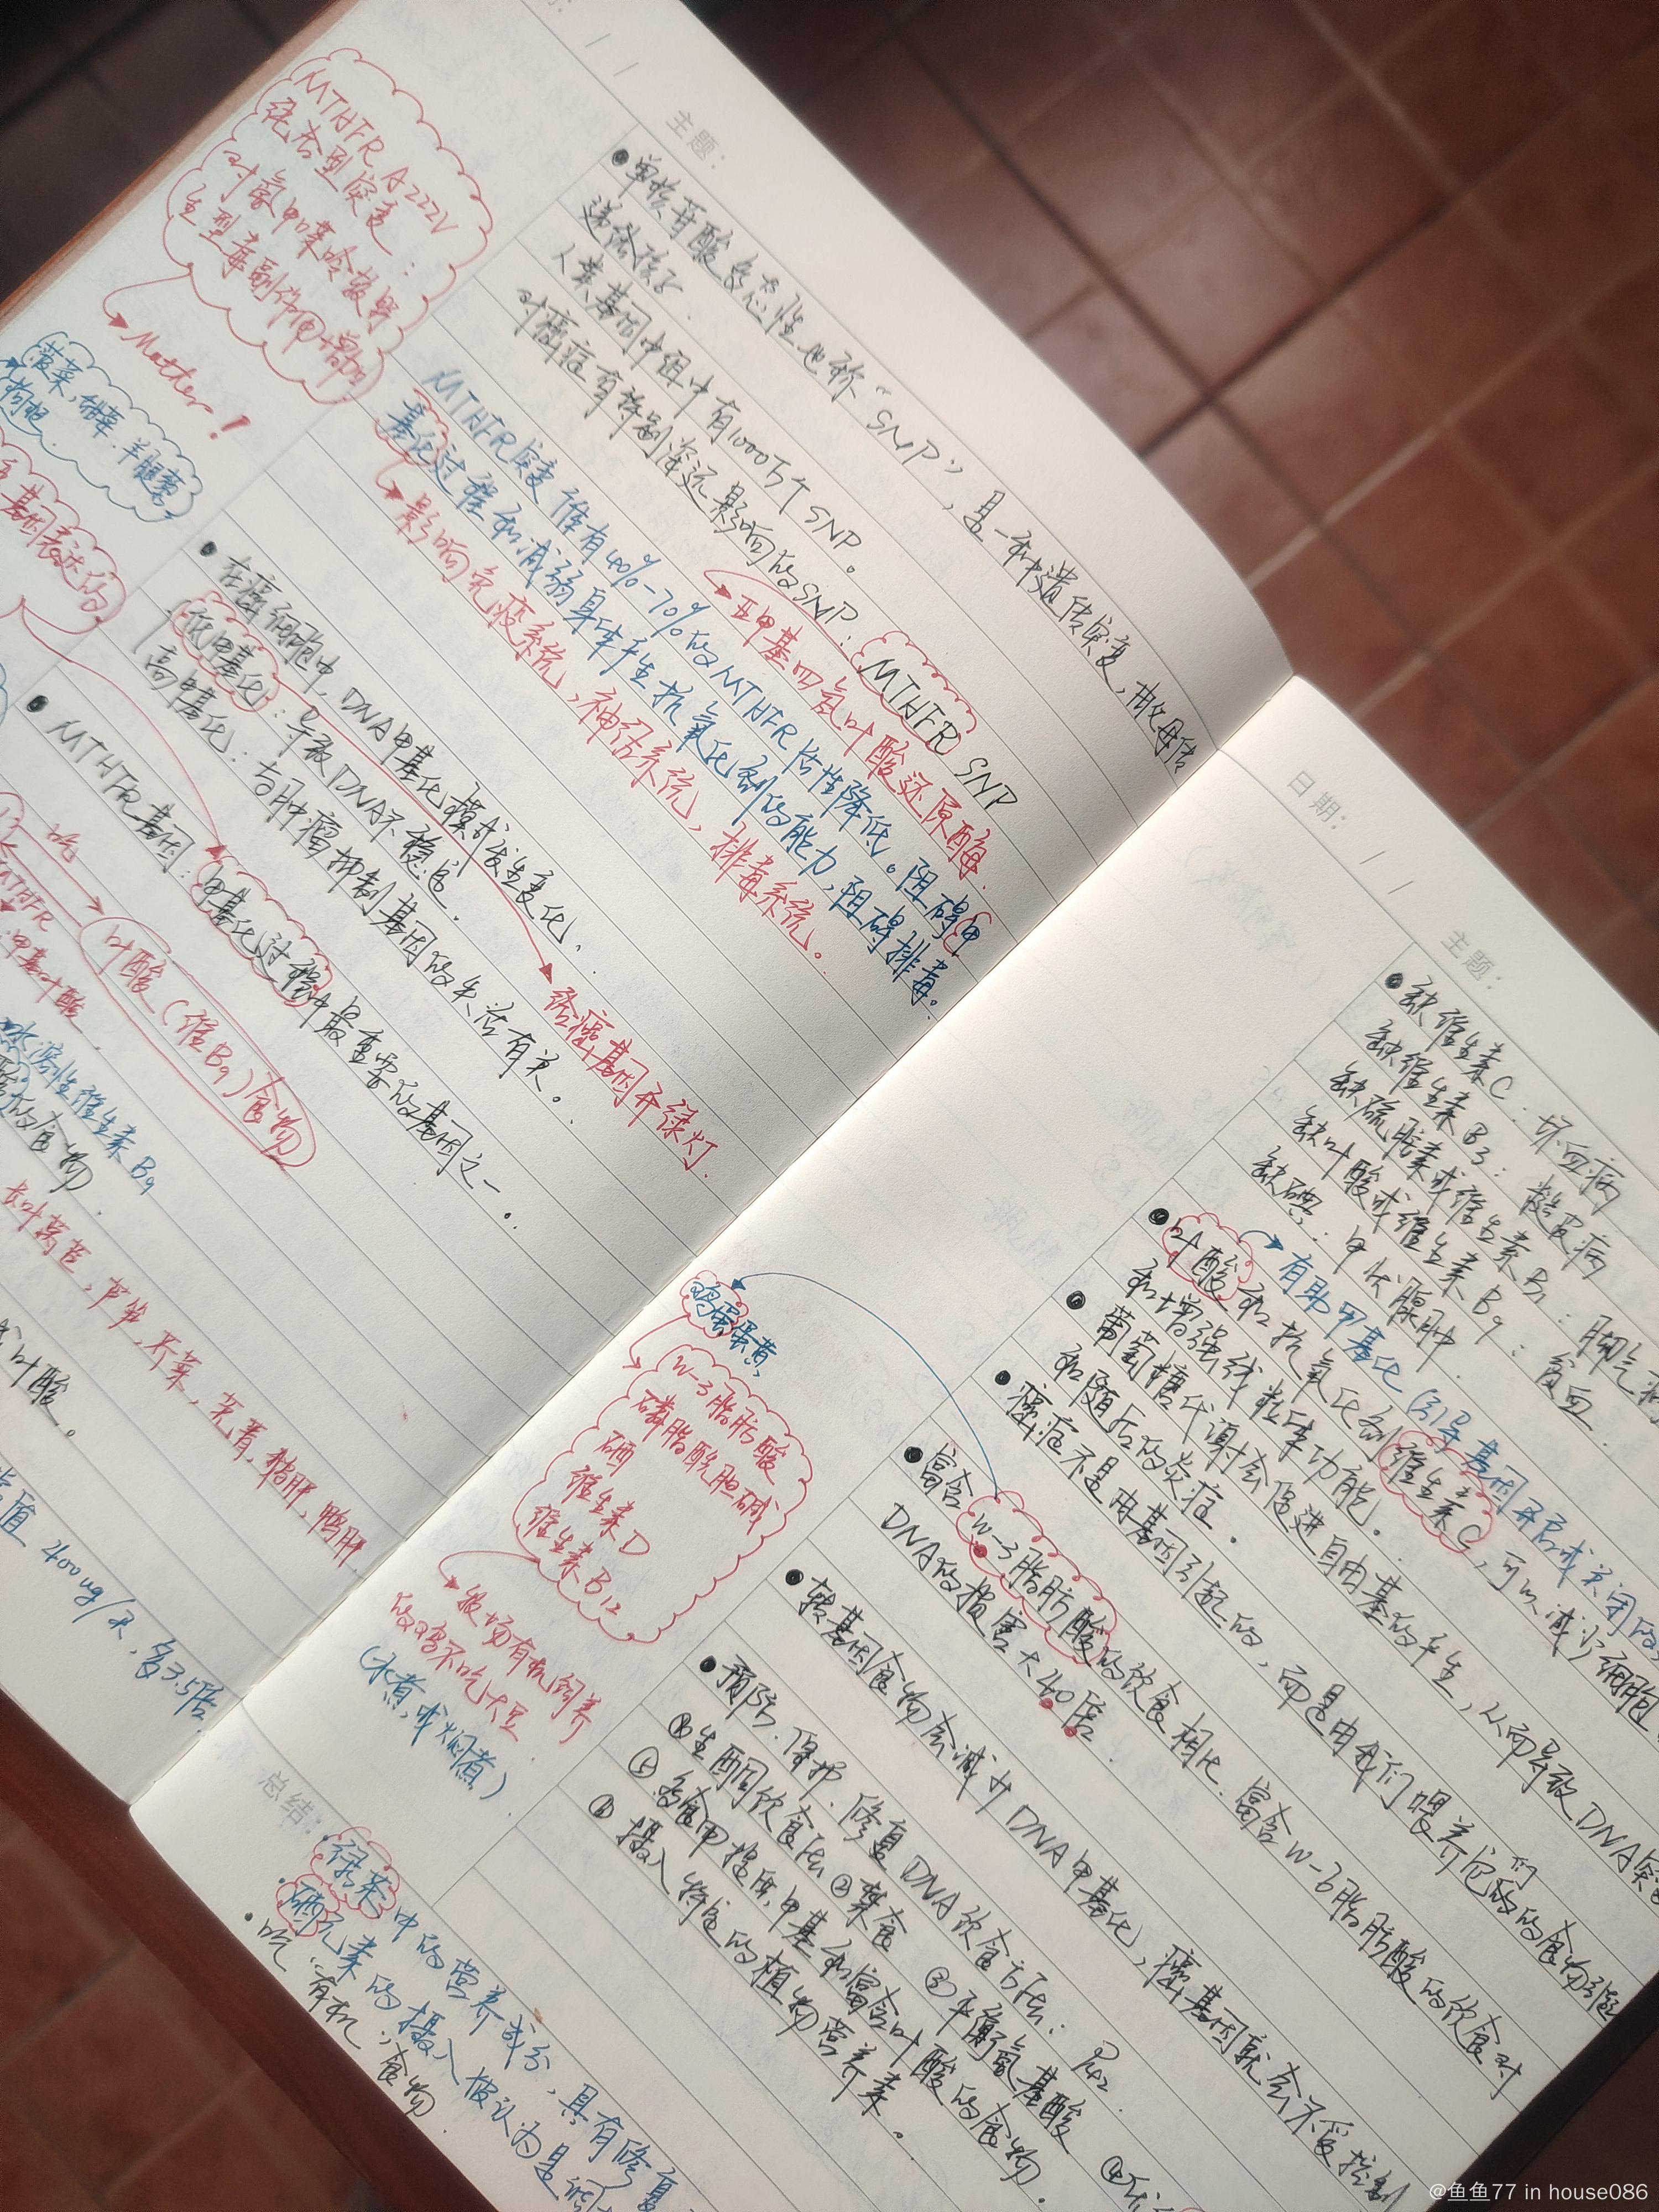 主题:
MTHFR A222V
纯合型突变:
对氨甲蝶呤较野
生型毒副作用增加
Mather!
菠菜,甜菜.羊腿藜
枸杞.
基因表达的
•单核苷酸多态性也称“SNP”,是一种遗传突变,由父母传
递给孩子.
人类基因中组中有1000万个SNP。
对癌症有特别深远影响的SNP:MTHFR SNP
亚甲基四氢叶酸还原酶.
MTHFR突变 谁有40%-70%的MTHFR活性降低。阻碍甲
基化过程和减弱身体产生抗氧化剂的能力,阻碍排毒。
影响免疫系统,神经系统,排毒系统。
•在癌细胞中,DNA甲基化模式发生变化.
低甲基化:导致DNA不稳定.
给癌基因开绿灯.
高甲基化:与肿瘤抑制基因的失活有关。
•MTHFR基因:甲基化过程中最重要的基因之一。
MTHFR
叶酸(维B9)食物
甲基叶酸
水溶性维生素B9
的食物.
芦笋,芥菜,芜菁,猪肝,鸭肝
叶酸。
400ug/天,多3.5倍.
日期: / /
主题:
•缺维生素C:坏血病
缺维生素B3:糙皮病
缺硫胺素或维生素B1:脚气病
缺叶酸或维生素B9:贫血
缺碘:甲状腺肿.
有助甲基化(引导基因开启或关闭的
•叶酸和抗氧化剂维生素C,可以减少细胞
和增强线粒体功能.
•葡萄糖代谢会促进自由基的产生,从而导致DNA突变
和随后的炎症.
•癌症不是由基因引起的,而是由我们喂养它们的食物引起
•富含w-3脂肪酸的饮食相比.富含w-6脂肪酸的饮食对
DNA的损害大40倍.
•转基因食物会减少DNA甲基化,癌基因就会不受控制
•预防.保护.修复DNA饮食方法:P42
①生酮饮食法 ②禁食 ③平衡氨基酸 ④
⑤多食甲提供.甲基和富含叶酸的食物.
⑥摄入特定的植物营养素。
鸡蛋蛋黄,
w-3脂肪酸
磷脂酰胆碱
硒
维生素D
维生素B12
牧场有机饲养
的鸡不吃大豆.
(水煮,或焖煮).
总结:
绿菜中的营养成分,具有修复
•硒元素的摄入被认为是
•吃“有机”食物
@鱼鱼77 in house086